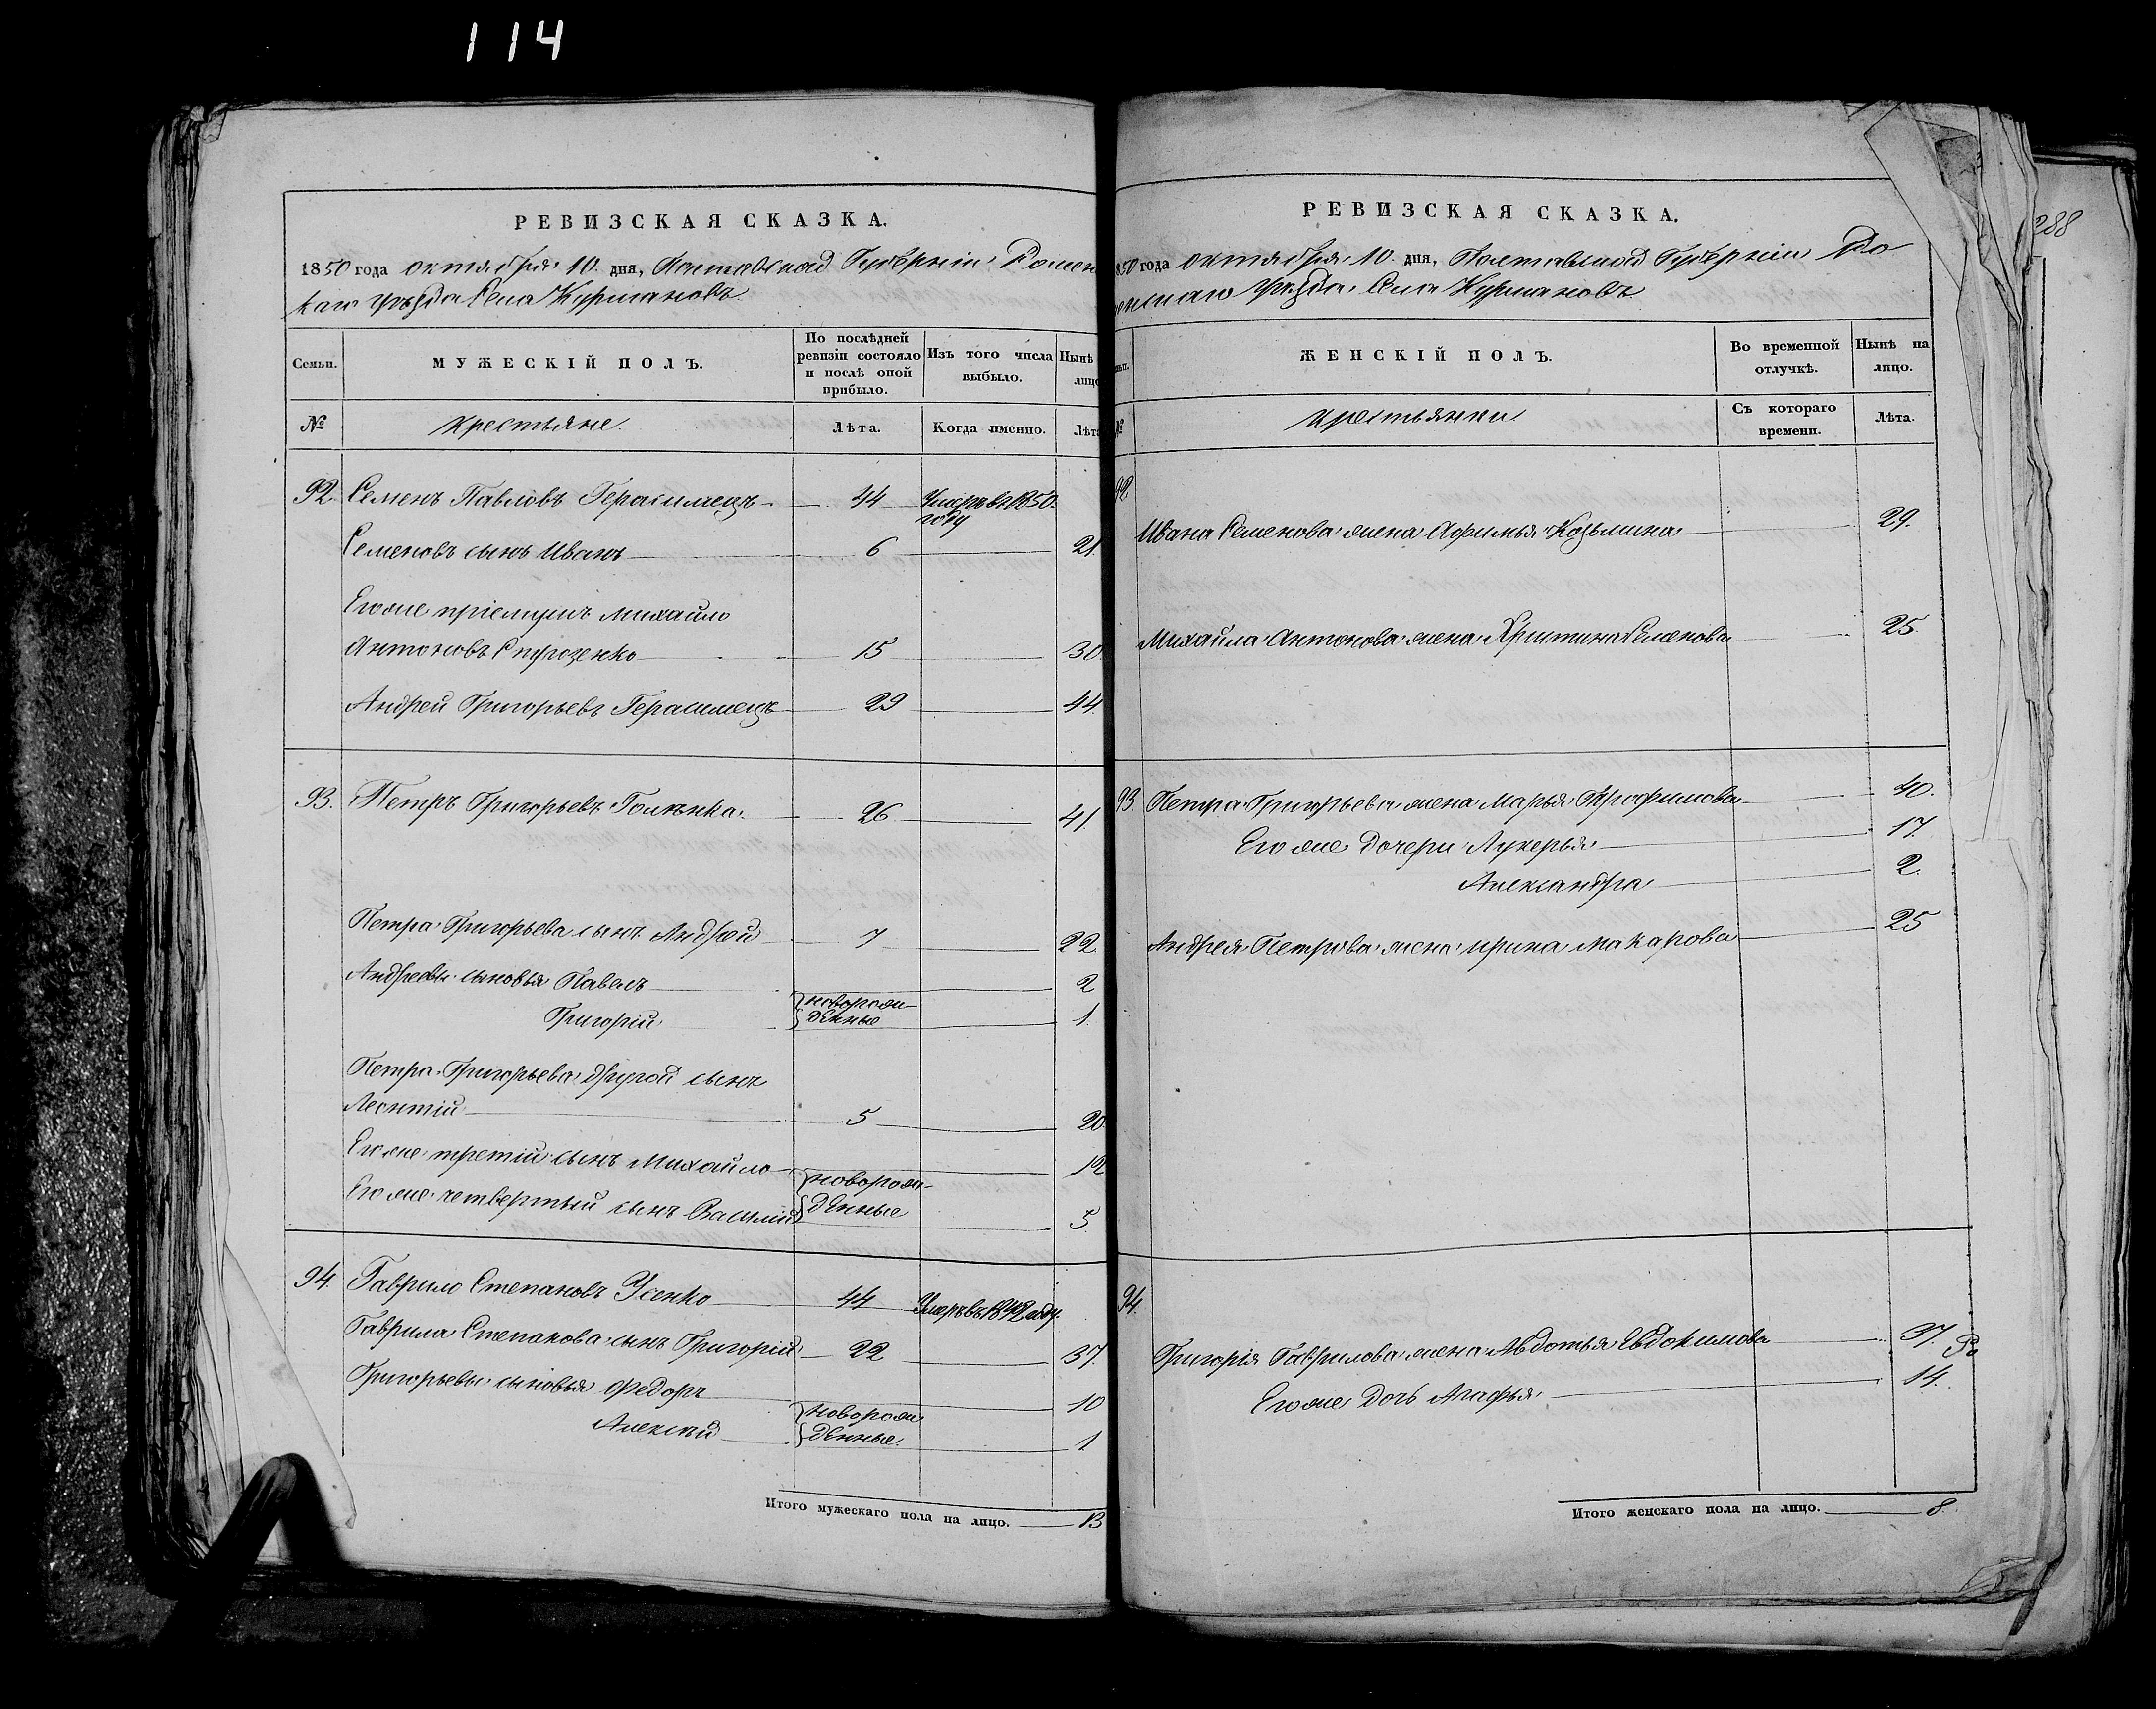 114
РЕВИЗСКАЯ СКАЗКА.
1850 года октября 10. дня, Полтавской Губерніи Ромен
каго уѣзда Села Курмановъ
Семьи.
МУЖЕСКІЙ ПОЛЪ.
По послѣдней ревизіи состояло и послѣ оной прибыло.
Изъ того числа выбыло.
Нынѣ
лицо
№
крестьяне.
Лѣта.
Когда именно.
Лѣта
92. Семенъ Павловъ Герасимецъ 44 Умеръ въ 1850. году
Семеновъ сынъ Иванъ 6 21.
Его же пріемышъ Михайло
Антоновъ 15 30
Андрей Григорьевъ Герасимецъ 29 44.
93. Петръ Григорьевъ 26 41.
Петра Григорьева сынъ Андрей 7 22.
Андреевы сыновья Павелъ 2
Григорій } новорож-
денные 1.
Петра Григорьева другой сынъ
Леонтій 5 20.
Его же третій сынъ Михайло 12
Его же четвертый сынъ Василій } новорож-
денные 5
94. Гаврило Степановъ Усенко 44 Умеръ въ 1842 году.
Гаврила Степанова сынъ Григорій 22 37.
Григорьевы сыновья Федоръ 10
Алексѣй } новорож
денные. 1
Итого мужескаго пола на лицо. 13
288
РЕВИЗСКАЯ СКАЗКА.
850 года октября 10. дня, Полтавской Губерніи Ро
менскаго уѣзда Села Курмановъ
ЖЕНСКІЙ ПОЛЪ.
Во временной отлучкѣ.
Нынѣ на лицо.
№
крестьянки
Съ котораго времени.
Лѣта.
92.
Ивана Семенова жена Афимья Козьмина 29.
Михайла Антонова жена Христина Семенова 25.
93. Петра Григорьева жена Марья Трофимова 40.
Его же дочери Лукерья 17.
Александра 2.
Андрея Петрова жена Ирина Макарова 25
94.
Григорія Гаврилова жена Авдотья Евдокимова 37.
Его же дочь Агафья 14.
Итого женскаго пола на лицо. 8.